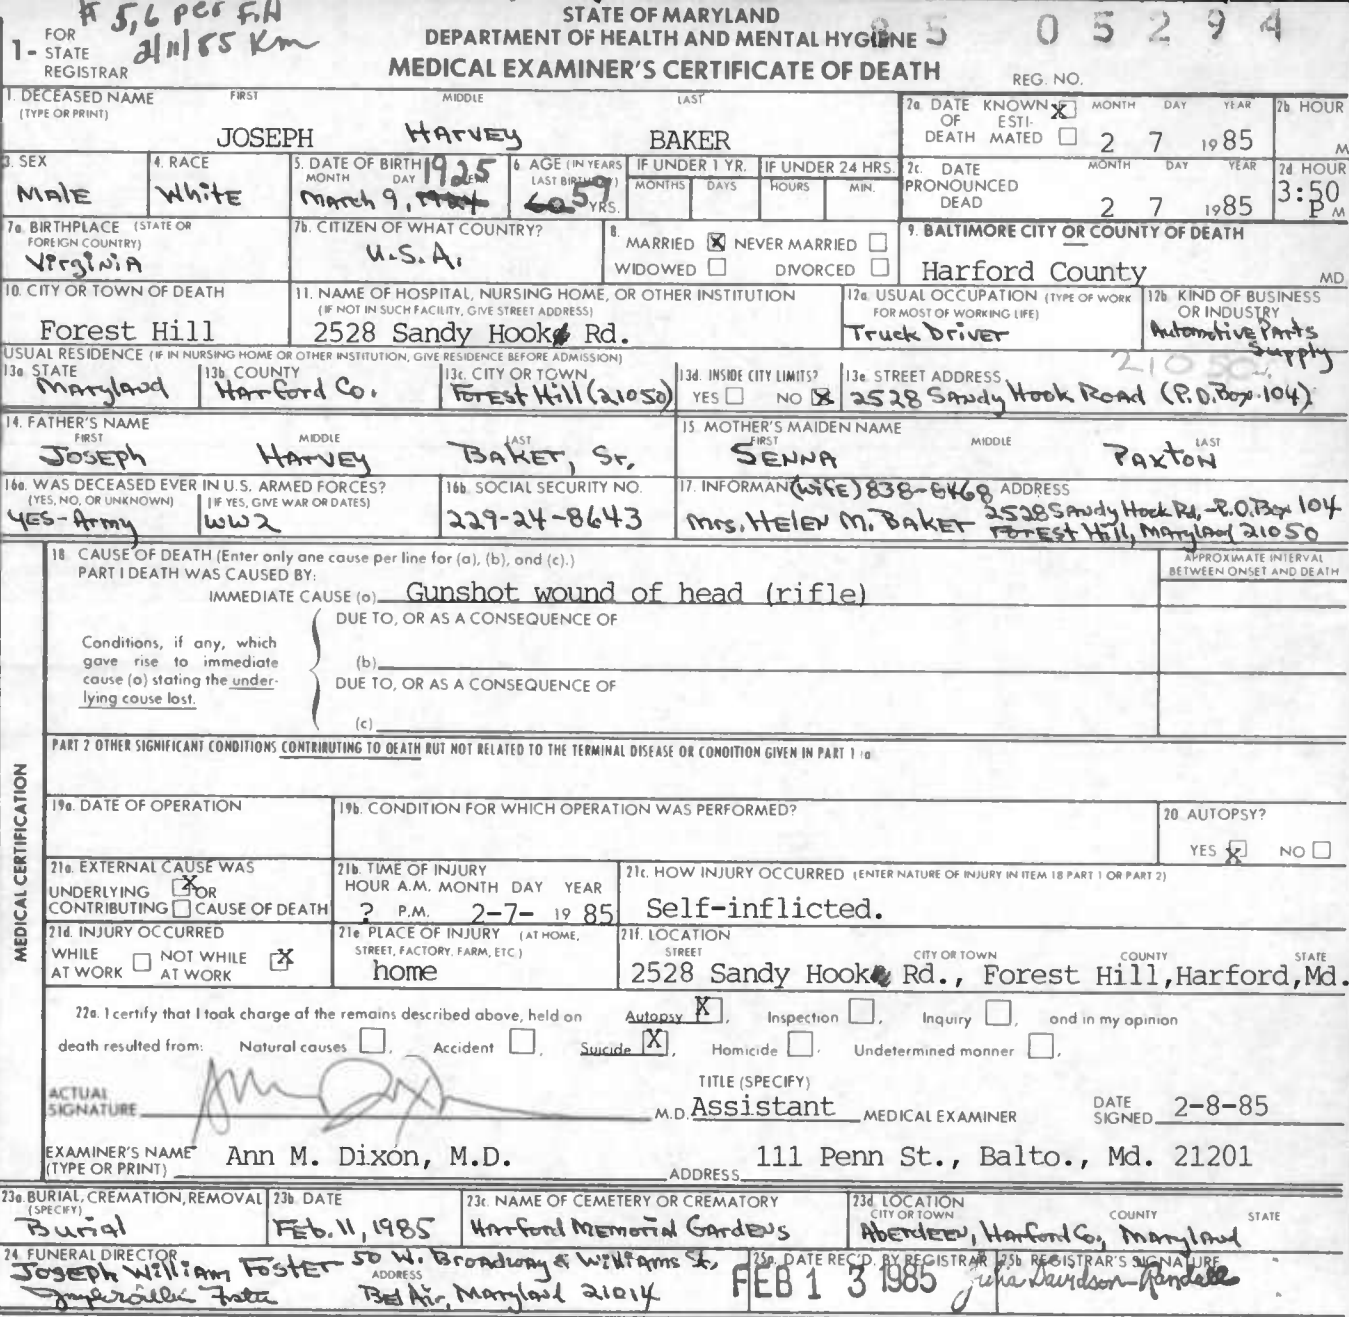 # 5,6 per F.H
2/11/85 Km
1- FOR STATE REGISTRAR
STATE OF MARYLAND
DEPARTMENT OF HEALTH AND MENTAL HYGIENE
85 05294
MEDICAL EXAMINER'S CERTIFICATE OF DEATH
REG. NO.
1. DECEASED NAME (TYPE OR PRINT) FIRST MIDDLE LAST
JOSEPH HARVEY BAKER
2a. DATE OF DEATH KNOWN X ESTIMATED MONTH DAY YEAR
2 7 1985
2b. HOUR M
3. SEX
Male
4. RACE
White
5. DATE OF BIRTH MONTH DAY YEAR
March 9, 1924 1925
6. AGE (IN YEARS LAST BIRTHDAY)
60 59 YRS.
IF UNDER 1 YR. MONTHS DAYS
IF UNDER 24 HRS. HOURS MIN.
2c. DATE PRONOUNCED DEAD MONTH DAY YEAR
2 7 1985
2d. HOUR
3:50 P M
7a. BIRTHPLACE (STATE OR FOREIGN COUNTRY)
Virginia
7b. CITIZEN OF WHAT COUNTRY?
U.S.A.
8. MARRIED X NEVER MARRIED
WIDOWED DIVORCED
9. BALTIMORE CITY OR COUNTY OF DEATH
Harford County MD.
10. CITY OR TOWN OF DEATH
Forest Hill
11. NAME OF HOSPITAL, NURSING HOME, OR OTHER INSTITUTION
(IF NOT IN SUCH FACILITY, GIVE STREET ADDRESS)
2528 Sandy Hook Rd.
12a. USUAL OCCUPATION (TYPE OF WORK FOR MOST OF WORKING LIFE)
Truck Driver
12b. KIND OF BUSINESS OR INDUSTRY
Automotive Parts Supply
USUAL RESIDENCE (IF IN NURSING HOME OR OTHER INSTITUTION, GIVE RESIDENCE BEFORE ADMISSION)
21050
13a. STATE
Maryland
13b. COUNTY
Harford Co.
13c. CITY OR TOWN
Forest Hill (21050)
13d. INSIDE CITY LIMITS?
YES NO X
13e. STREET ADDRESS
2528 Sandy Hook Road (P.O. Box 104)
14. FATHER'S NAME FIRST MIDDLE LAST
Joseph Harvey Baker, Sr.
15. MOTHER'S MAIDEN NAME FIRST MIDDLE LAST
Senna Paxton
16a. WAS DECEASED EVER IN U.S. ARMED FORCES?
(YES, NO, OR UNKNOWN) (IF YES, GIVE WAR OR DATES)
YES-Army WW2
16b. SOCIAL SECURITY NO.
229-24-8643
17. INFORMANT (Wife) 838-8468 ADDRESS
Mrs. HELEN M. BAKER 2528 Sandy Hook Rd,-P.O. Box 104
Forest Hill, Maryland 21050
MEDICAL CERTIFICATION
18. CAUSE OF DEATH (Enter only one cause per line for (a), (b), and (c).)
PART I DEATH WAS CAUSED BY:
APPROXIMATE INTERVAL BETWEEN ONSET AND DEATH
IMMEDIATE CAUSE (a) Gunshot wound of head (rifle)
DUE TO, OR AS A CONSEQUENCE OF
Conditions, if any, which gave rise to immediate cause (a) stating the underlying cause last.
(b)
DUE TO, OR AS A CONSEQUENCE OF
(c)
PART 2 OTHER SIGNIFICANT CONDITIONS CONTRIBUTING TO DEATH BUT NOT RELATED TO THE TERMINAL DISEASE OR CONDITION GIVEN IN PART 1 (a)
19a. DATE OF OPERATION
19b. CONDITION FOR WHICH OPERATION WAS PERFORMED?
20. AUTOPSY?
YES X NO
21a. EXTERNAL CAUSE WAS
UNDERLYING X OR
CONTRIBUTING CAUSE OF DEATH
21b. TIME OF INJURY
HOUR A.M. MONTH DAY YEAR
? P.M. 2-7- 19 85
21c. HOW INJURY OCCURRED (ENTER NATURE OF INJURY IN ITEM 18 PART 1 OR PART 2)
Self-inflicted.
21d. INJURY OCCURRED
WHILE AT WORK NOT WHILE AT WORK X
21e. PLACE OF INJURY (AT HOME, STREET, FACTORY, FARM, ETC.)
home
21f. LOCATION
STREET CITY OR TOWN COUNTY STATE
2528 Sandy Hook Rd., Forest Hill,Harford,Md.
22a. I certify that I took charge of the remains described above, held on Autopsy X, Inspection, Inquiry, and in my opinion
death resulted from: Natural causes, Accident, Suicide X, Homicide, Undetermined manner.
TITLE (SPECIFY)
ACTUAL SIGNATURE M.D. Assistant MEDICAL EXAMINER DATE SIGNED 2-8-85
EXAMINER'S NAME (TYPE OR PRINT) Ann M. Dixon, M.D. ADDRESS 111 Penn St., Balto., Md. 21201
23a. BURIAL, CREMATION, REMOVAL (SPECIFY)
Burial
23b. DATE
Feb. 11, 1985
23c. NAME OF CEMETERY OR CREMATORY
Harford Memorial Gardens
23d. LOCATION CITY OR TOWN COUNTY STATE
Aberdeen, Harford Co., Maryland
24. FUNERAL DIRECTOR
Joseph William Foster 50 W. Broadway & Williams St,
ADDRESS
Bel Air, Maryland 21014
25a. DATE REC'D. BY REGISTRAR
FEB 13 1985
25b. REGISTRAR'S SIGNATURE
Julia Davidson-Randall